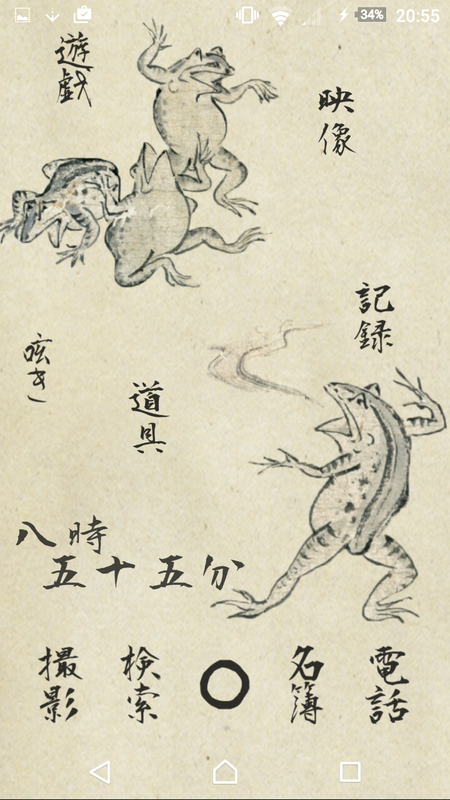 34% 20:55
遊戯
映像
記録
呟き
道具
八時
五十五分
撮影
検索
名簿
電話